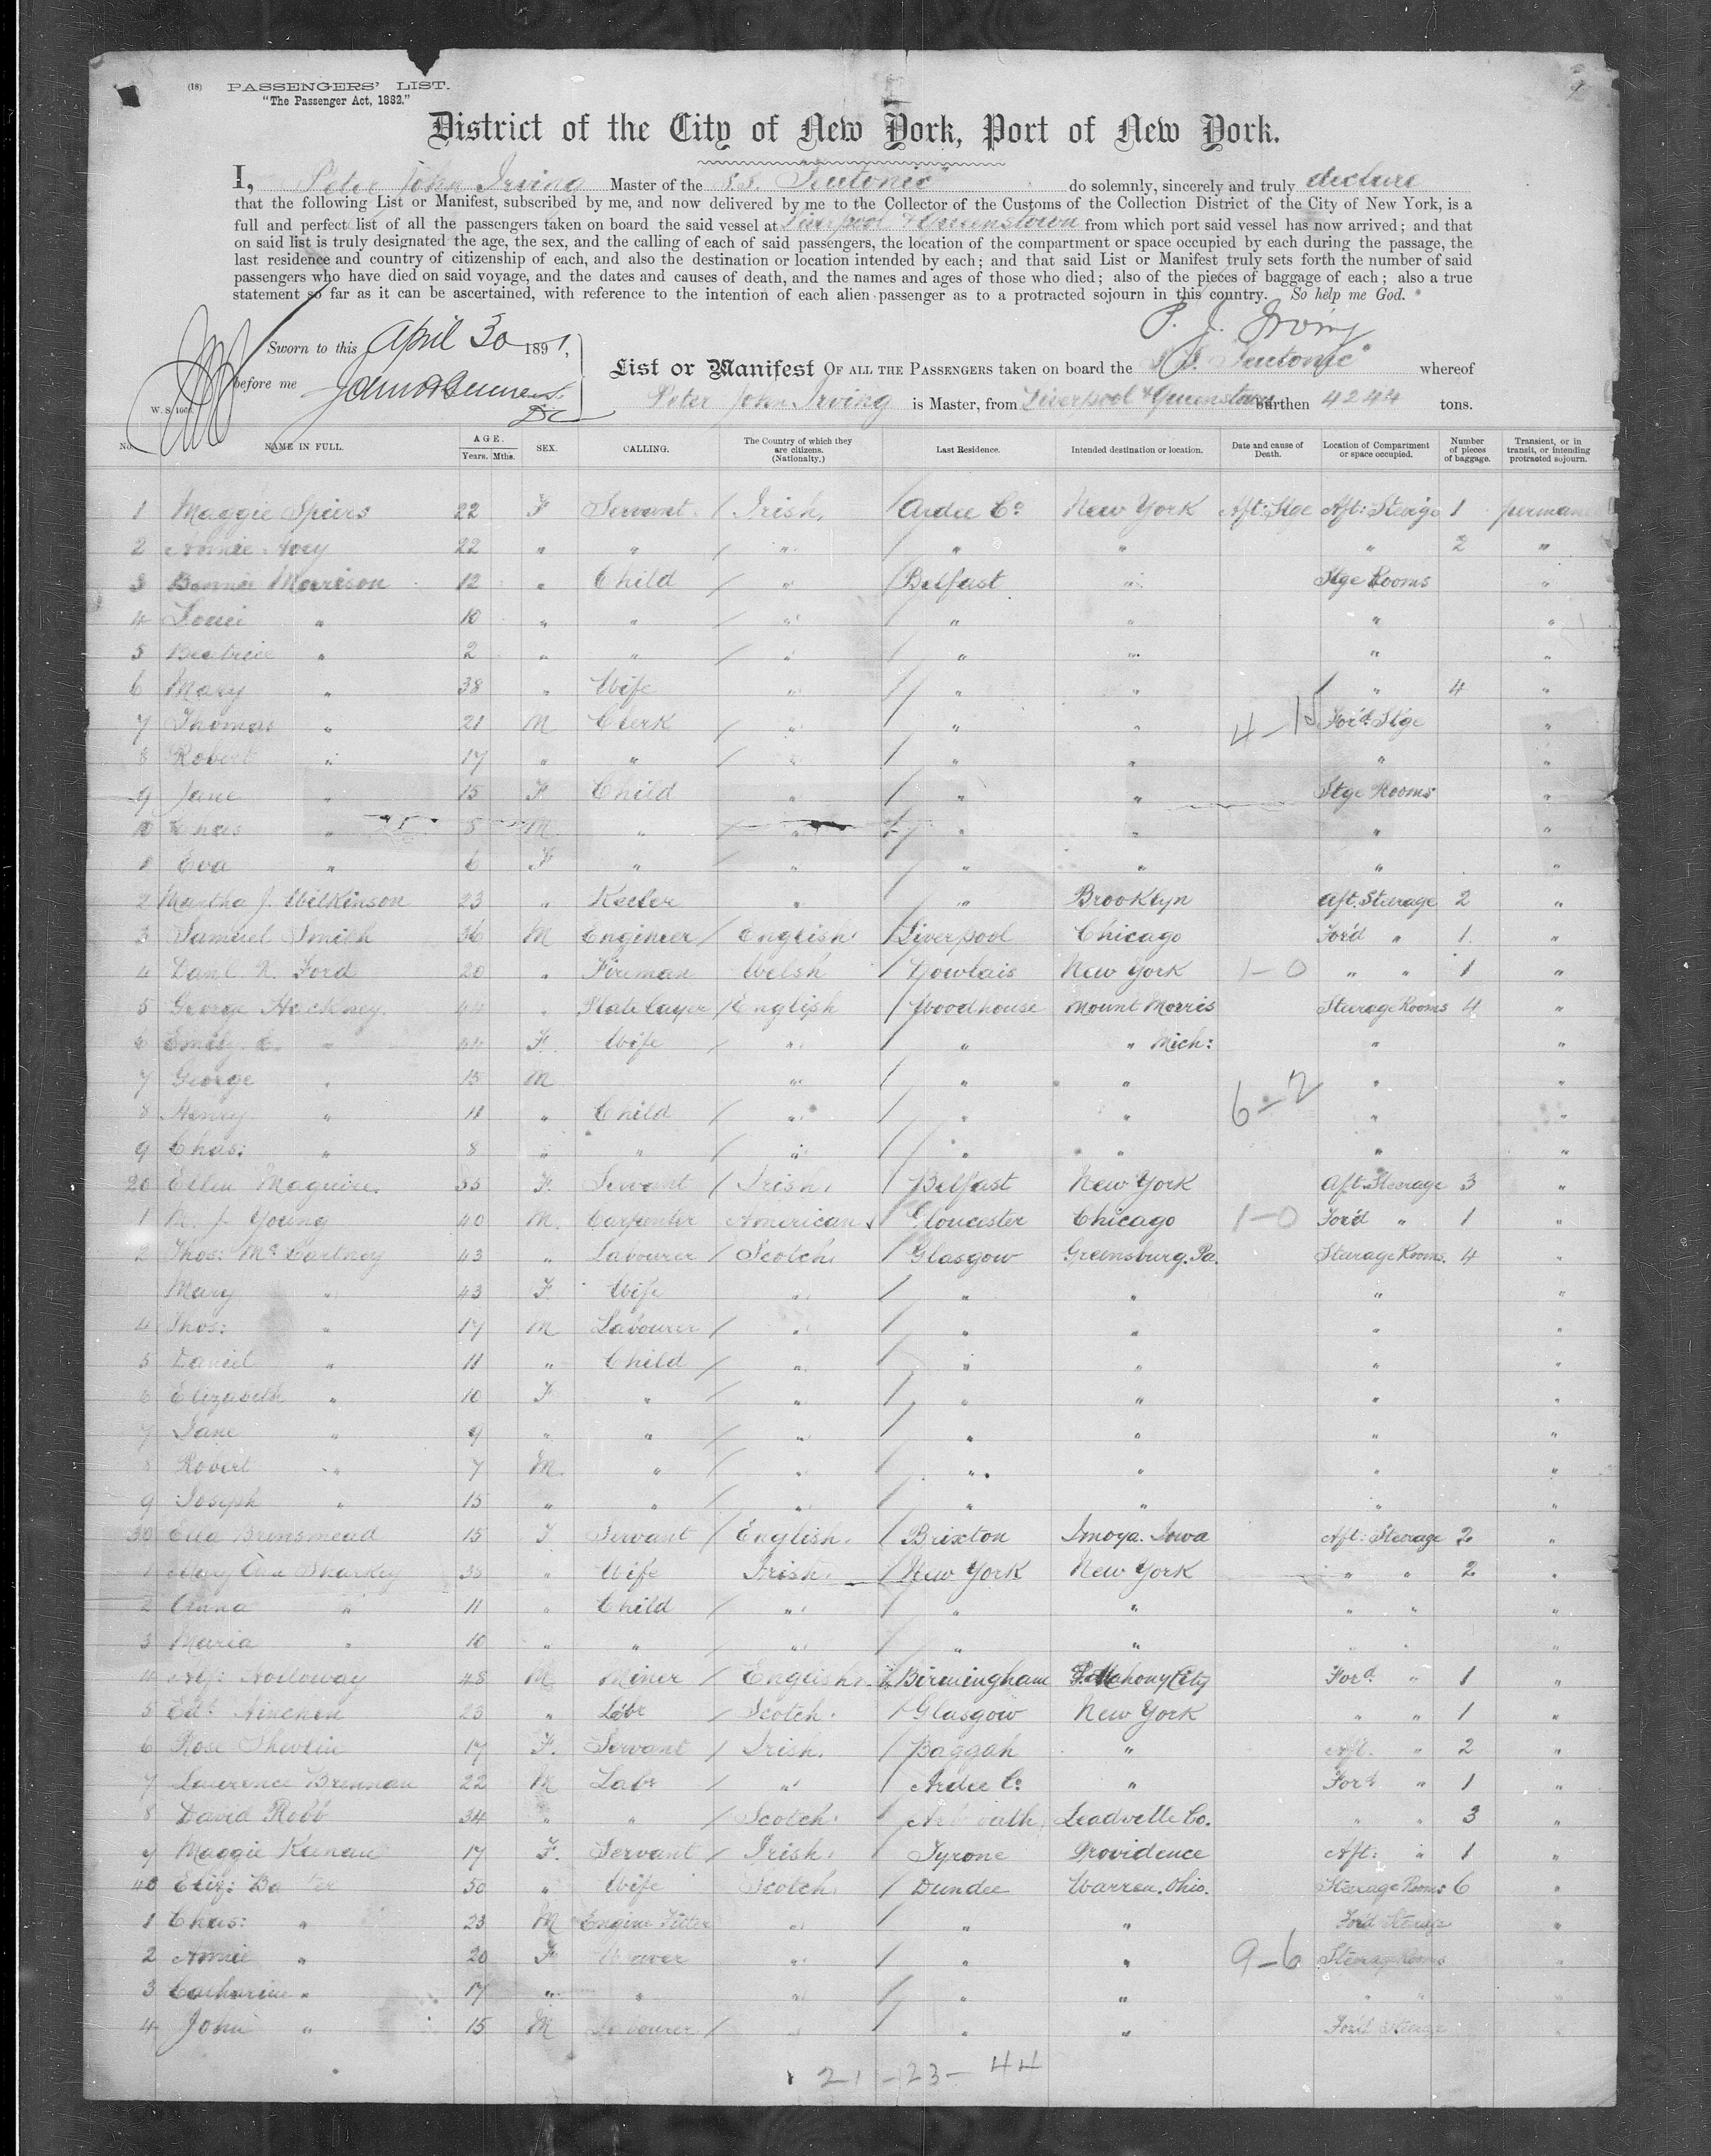 (18) PASSENGERS' LIST.
"The Passenger Act, 1882."
District of the City of New York, Port of New York.
I, Peter John Irving Master of the S.S. Teutonic" do solemnly, sincerely and truly declare
that the following List or Manifest, subscribed by me, and now delivered by me to the Collector of the Customs of the Collection District of the City of New York, is a
full and perfect list of all the passengers taken on board the said vessel at Liverpool & Queenstown from which port said vessel has now arrived; and that
on said list is truly designated the age, the sex, and the calling of each of said passengers, the location of the compartment or space occupied by each during the passage, the
last residence and country of citizenship of each, and also the destination or location intended by each; and that said List or Manifest truly sets forth the number of said
passengers who have died on said voyage, and the dates and causes of death, and the names and ages of those who died; also of the pieces of baggage of each; also a true
statement so far as it can be ascertained, with reference to the intention of each alien passenger as to a protracted sojourn in this country. So help me God.
P. J. Irving
Sworn to this April 30 1891,
List or Manifest OF ALL THE PASSENGERS taken on board the S.S. Teutonic" whereof
before me
Peter John Irving is Master, from Liverpool & Queenstown burthen 4244 tons.
No. NAME IN FULL. AGE. Years. Mths. SEX. CALLING. The Country of which they are citizens. (Nationalty.) Last Residence. Intended destination or location. Date and cause of Death. Location of Compartment or space occupied. Number of pieces of baggage. Transient, or in transit, or intending protracted sojourn.
1 Maggie Speirs 22 F Servant / Irish, / Ardee Co. New York Aft: Stge Aft: Sterige 1
2 Annie 22 " " / " / " " " 2 "
3 Morrison 12 " Child / " / Belfast " Stge Rooms "
4 " 10 " " / " / " " " "
5 Beatrice " 2 " " / " / " " " "
6 Mary " 38 " Wife " / " " " 4 "
7 Thomas " 21 M Clerk / " / " " 4-15 For'd Stge "
8 Robert " 17 " " / " / " " " "
9 Jane " 15 F Child " / " " Stge Rooms "
10 Chas " 8 M " / " / " " " "
1 Eva " 6 F " / " / " " " "
2 Martha J. Wilkinson 23 " " / " Brooklyn Aft. Steerage 2 "
3 Samuel Smith 36 M Engineer / English / Liverpool Chicago For'd " 1 "
4 Danl. Ford 20 " Fireman Welsh / Dowlais New York 1-0 " " 1 "
5 George Hackney 44 " Platelayer / English / Woodhouse Mount Morris Steerage Rooms 4 "
6 Emily E. " 44 F. Wife / " / " " Mich: " "
7 George " 15 M " / " " 6-2 " "
8 Henry " 11 " Child / " / " " " "
9 Chas: " 8 " " / " / " " " "
20 Ellen Maguire. F. Servant / Irish, / Belfast New York Aft. Steerage 3 "
1 J. Young 40 M. Carpenter American Gloucester Chicago 1-0 For'd " 1 "
2 Thos: McCartney 43 " Labourer / Scotch, / Glasgow Greensburg. Pa. Steerage Rooms. 4 "
Mary " 43 F. Wife " / " " " "
4 Thos: " 17 M Labourer / " / " " " "
5 Daniel " 11 " Child / " / " " " "
6 Elizabeth " 10 F " / " / " " " "
7 Jane " 9 " " / " / " " " "
8 Robert " 7 M. " / " / " " " "
9 Joseph " 15 " " / " / " " " "
30 Ella Brinsmead 15 F Servant / English. / Brixton Iowa Aft: Steerage 2 "
1 Mary Ann Sharkey " Wife Irish. / New York New York " " 2 "
2 Anna " 11 " Child / " / " " " " "
3 Maria " 10 " " / " / " " " " "
4 Alf: Holloway 48 M Miner / English, Birmingham Mahony City For'd " 1 "
5 Edt. 23 " Labr / Scotch. / Glasgow New York " " 1 "
6 Rose Shevlin 17 F. Servant / Irish. / Baggah " Aft. " 2 "
7 Lawrence Brennan 22 M Labr / " / Ardee Co. " For'd " 1 "
8 David Robb 34 " " / Scotch. / Leadville Co. " " 3 "
9 Maggie Keenan 17 F. Servant / Irish. / Tyrone Providence Aft: " 1 "
40 Eliz: 50 " Wife Scotch. / Dundee Warren. Ohio. Steerage Rooms 6 "
1 Chas: " 23 M Engine Fitter " / " " For'd Steerage "
2 Annie " 20 F Weaver " / " " 9-6 Steerage Rooms "
3 Catharine " 17 " " " / " " " " "
4 John " 15 M Labourer / " / " " For'd Steerage "
21-23-44